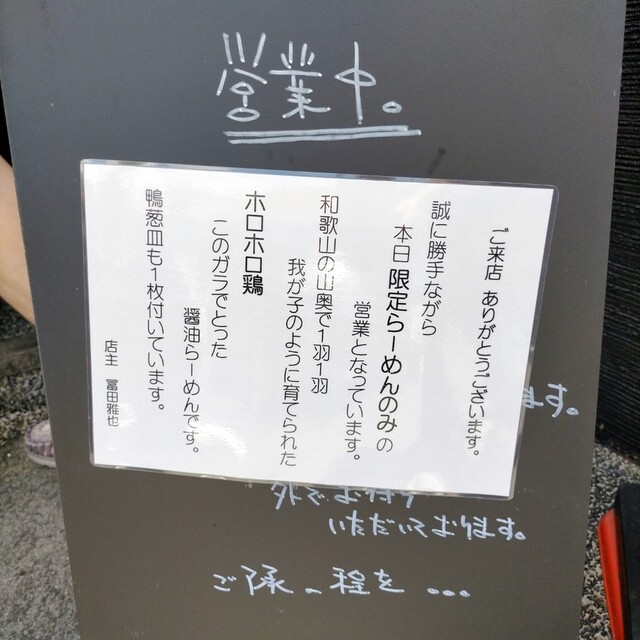 営業中。
ご来店 ありがとうございます。
誠に勝手ながら
本日 限定らーめんのみ の
営業となっています。
和歌山の山奥で1羽1羽
我が子のように育てられた
ホロホロ鶏
このガラでとった
醤油らーめんです。
鴨葱皿も1枚付いています。
店主 冨田雅也
ます。
外でお待ち
いただいております。
程を...